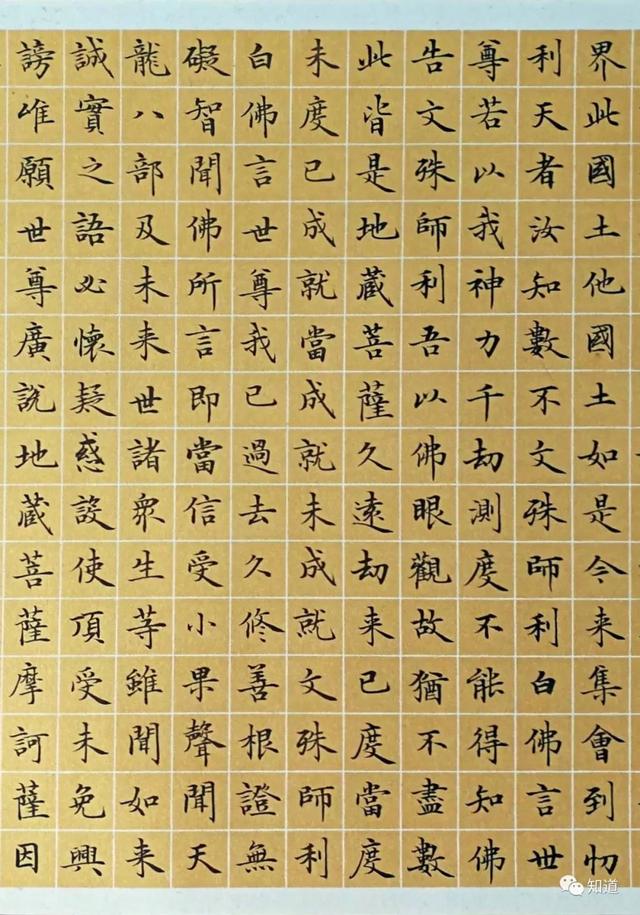 界此國土他國土如是今来集會到忉
利天者汝知數不文殊師利白佛言世
尊若以我神力千劫測度不能得知佛
告文殊師利吾以佛眼觀故猶不盡數
此皆是地藏菩薩久遠劫来已度當度
未度已成就當成就未成就文殊師利
白佛言世尊我已過去久修善根證無
礙智聞佛所言即當信受小果聲聞天
龍八部及未来世諸衆生等雖聞如来
誠實之語必懷疑惑設使頂受未免興
謗唯願世尊廣說地藏菩薩摩訶薩因
知道